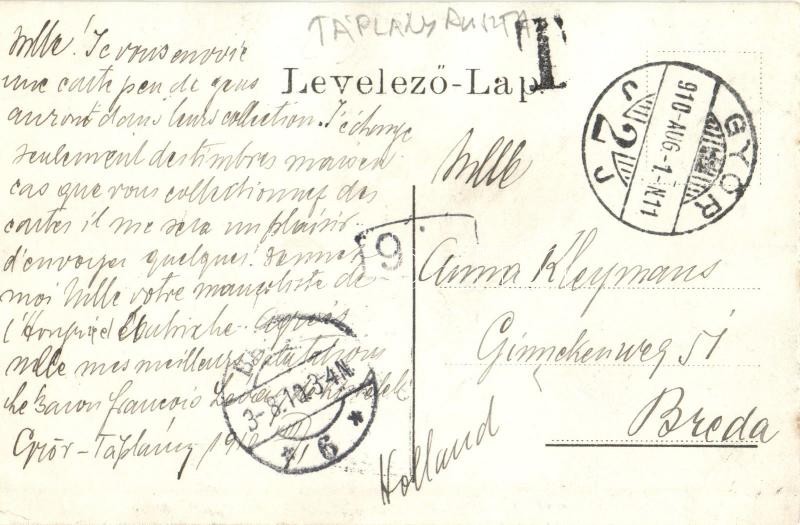 TÁPLÁNY PUSZTA
T
Levelező-Lap.
GYŐR
910-AUG-1-N11
2
Mlle! Je vous envoie
une carte peu de gens
auront dans leurs collection. J'échange
seulement des timbres mais en
cas que vous collectionnez des
cartes il me sera un plaisir
d'envoyer quelques! Donnez
moi Mlle votre mancoliste de
l'Hongrie
Mlle mes meilleurs salutations
Le Baron François
Győr-Táplány 1910
9
3-8.10.3-4N
* 6 *
Mlle
Anna Kleymans
Ginnekenweg 51
Breda
Holland